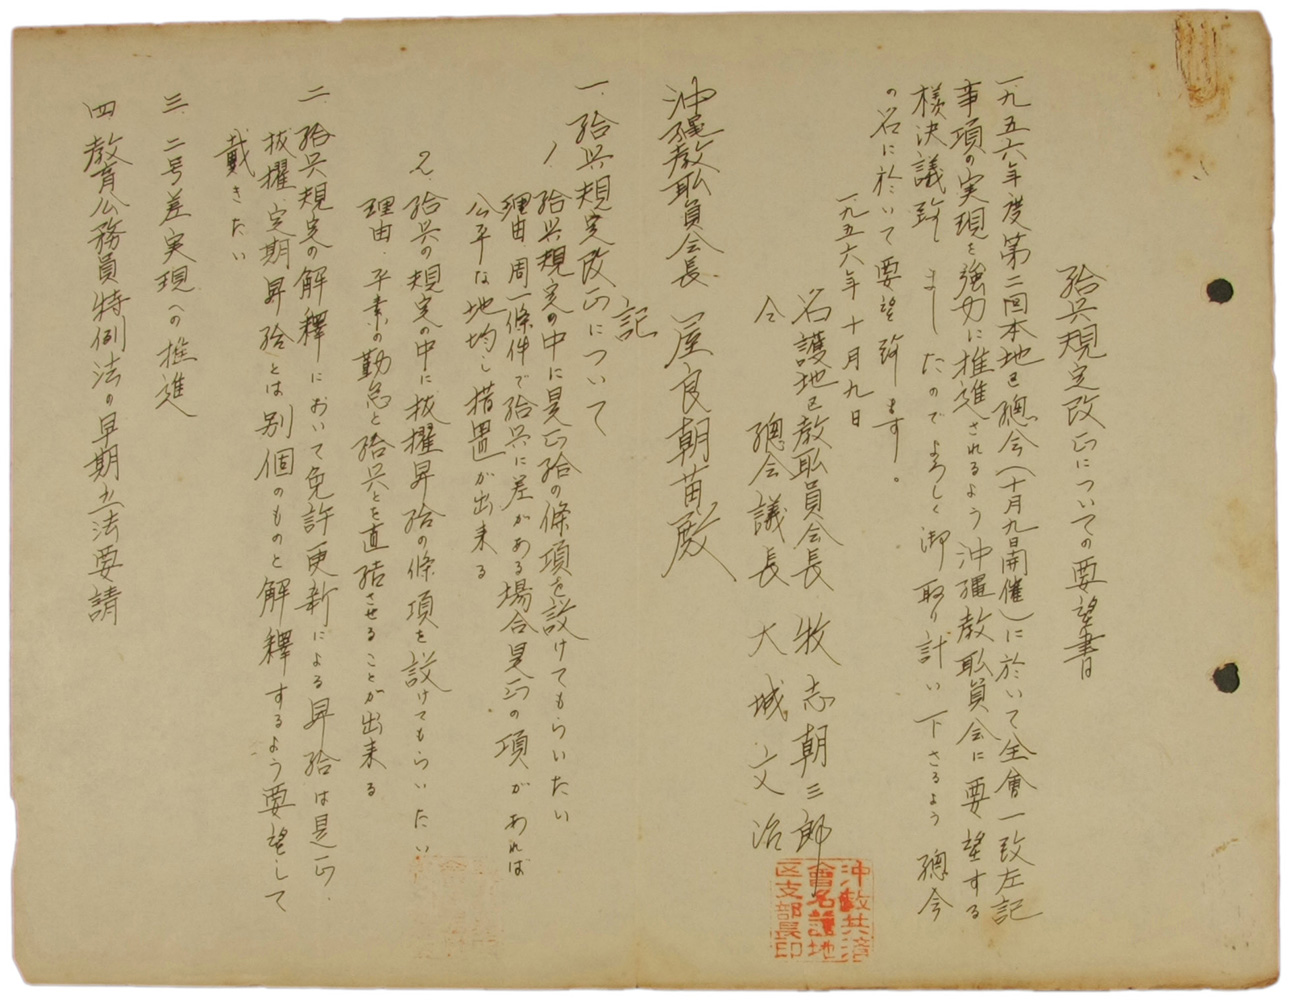 給與規定改正についての要望書
一九五六年度第二回本地区總会(十月九日開催)に於いて全會一致左記
事項の実現を強力に推進されるよう沖縄教職員会に要望する
様決議致しましたのでよろしく御取り計い下さるよう總会
の名に於いて要望致します。
一九五六年十月九日
名護地区教職員会長 牧志朝三郎
仝 總会議長 大城文治
沖縄教職員会長 屋良朝苗殿
記
一、給與規定改正について
1 給與規定の中に是正給の條項を設けてもらいたい
理由 周一條件で給與に差がある場合是正の項があれば
公平な地均し措置が出来る
2、給與の規定の中に抜擢昇給の條項を設けてもらいたい
理由、平素の勤怠と給與とを直結させることが出来る
二、給與規定の解釋において免許更新による昇給は是正
抜擢、定期昇給とは別個のものと解釋するよう要望して
戴きたい
三、二号差実現への推進
四 教育公務員特例法の早期立法要請
沖教共済
會名護地
区支部長印